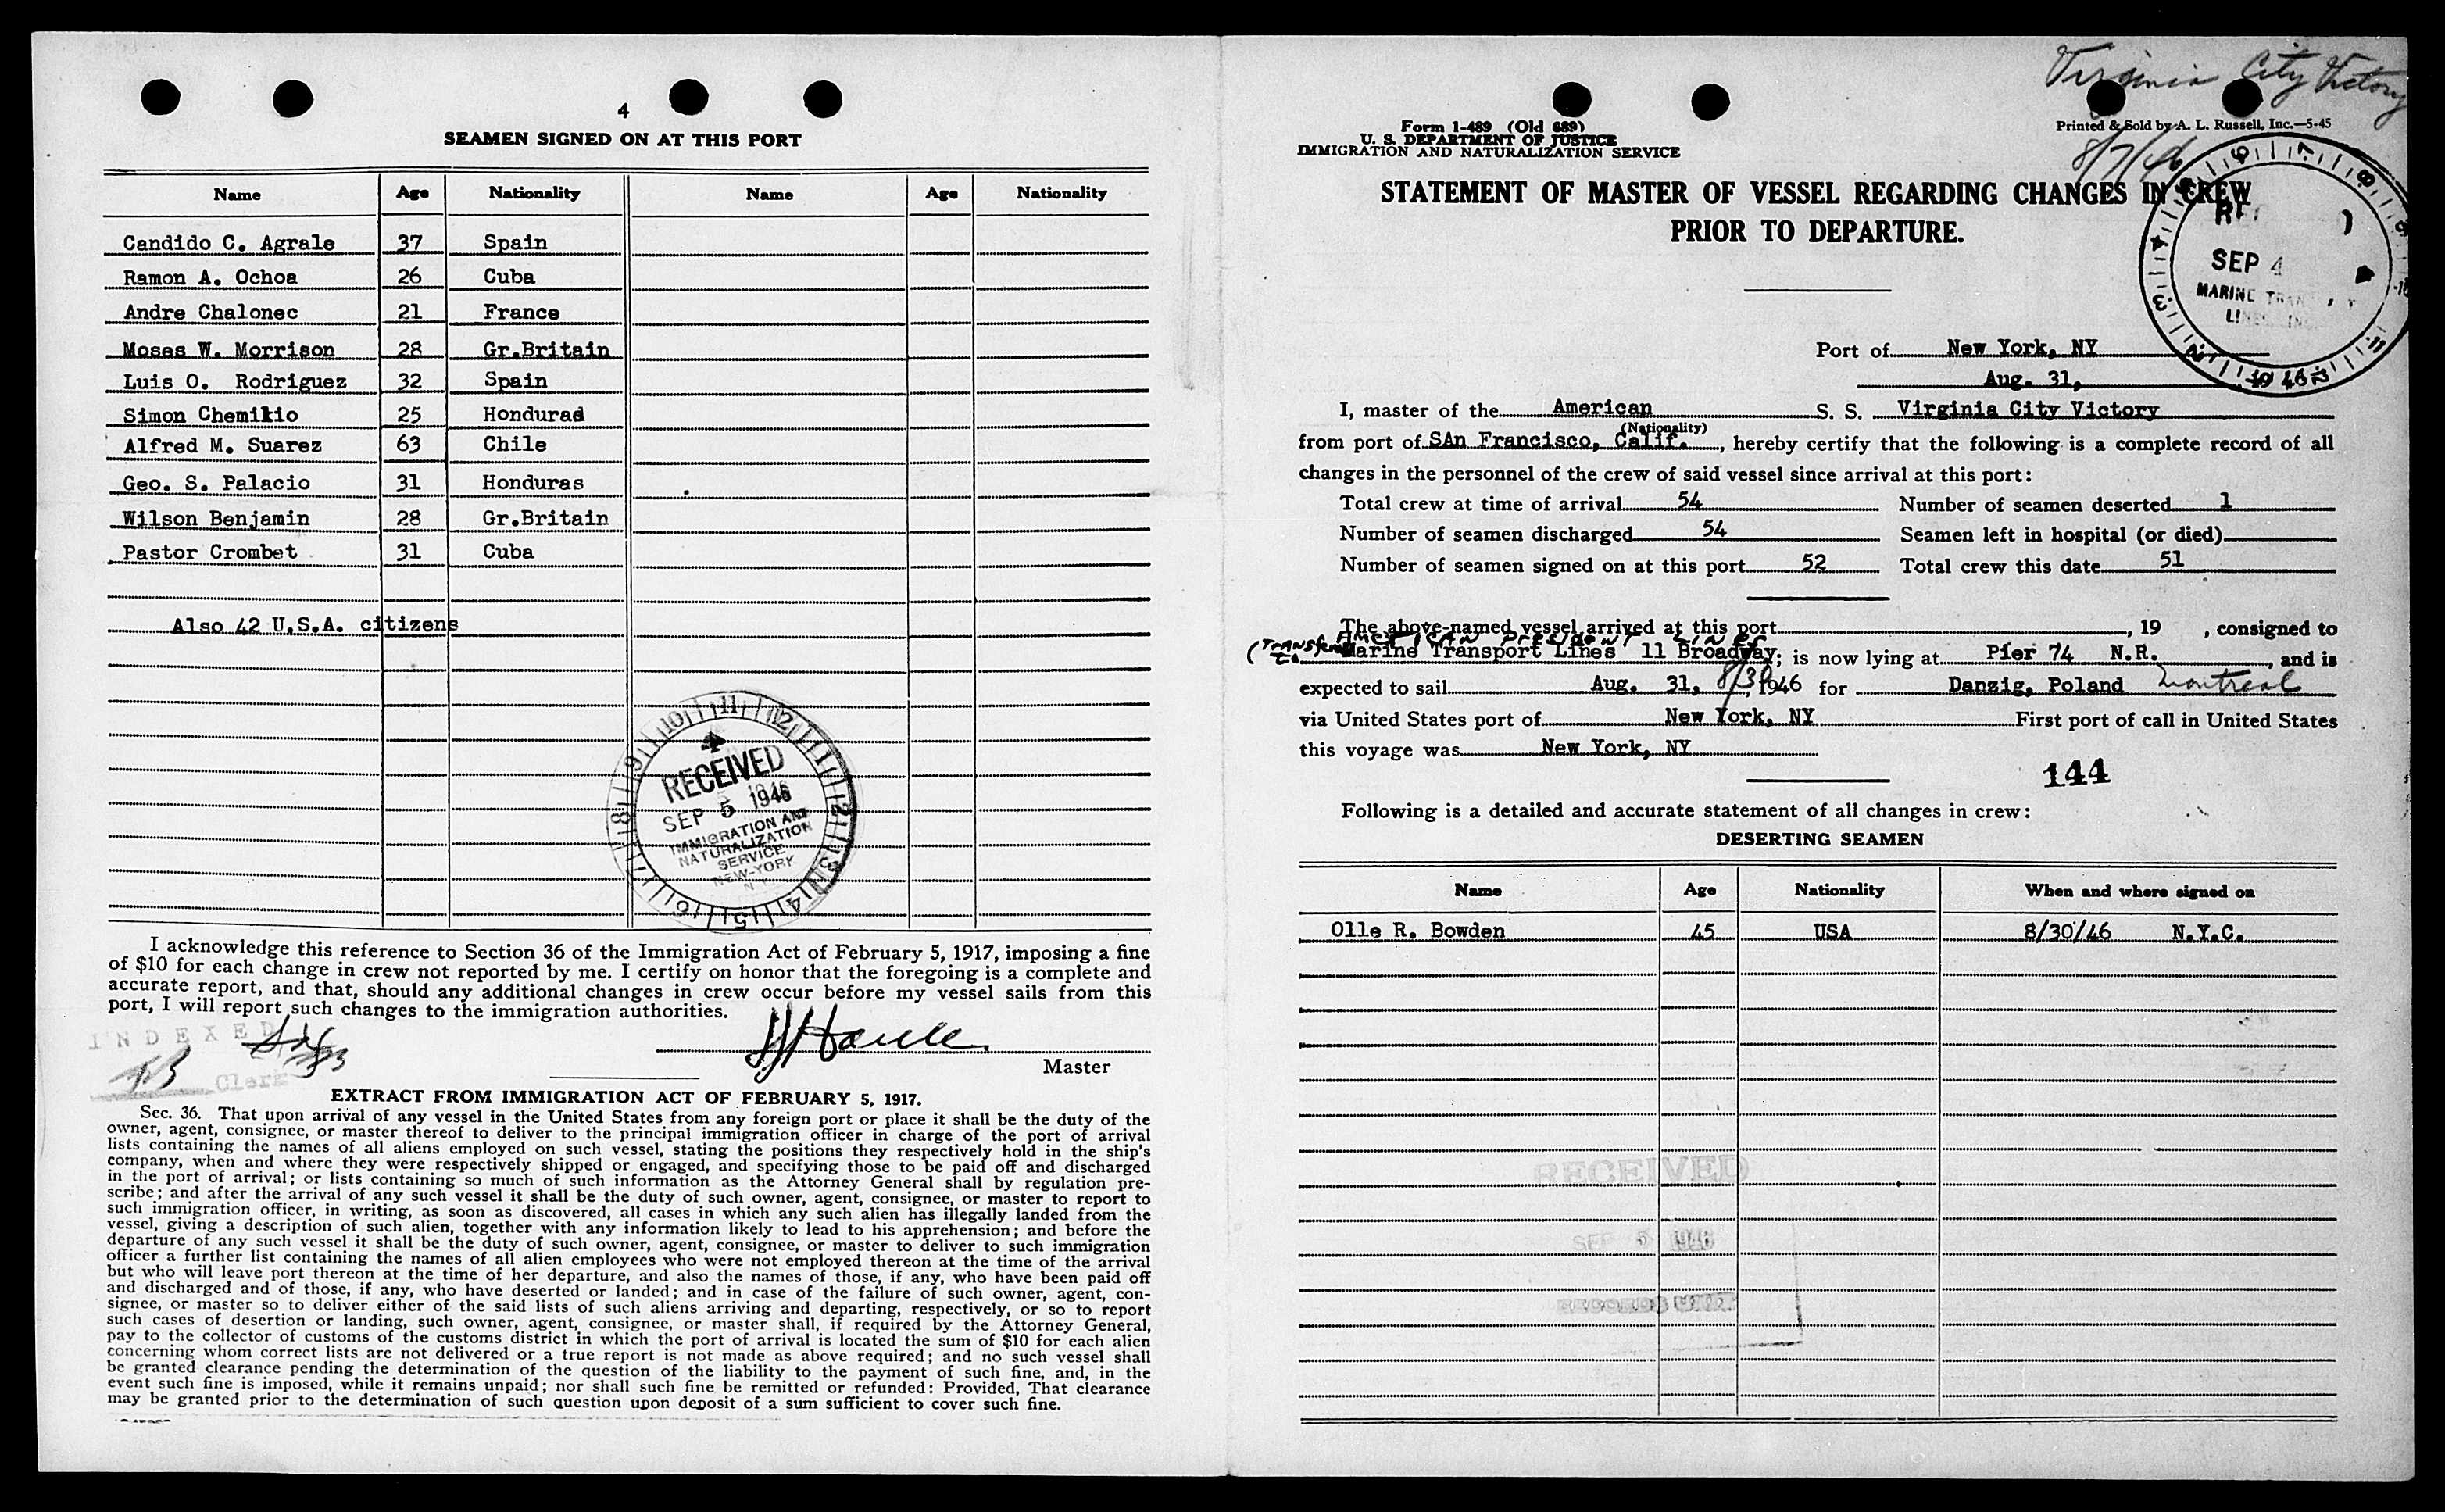 4
SEAMEN SIGNED ON AT THIS PORT
Name Age Nationality Name Age Nationality
Candido C. Agrale 37 Spain
Ramon A. Ochoa 26 Cuba
Andre Chalonec 21 France
Moses W. Morrison 28 Gr.Britain
Luis O. Rodriguez 32 Spain
Simon Chemilio 25 Honduras
Alfred M. Suarez 63 Chile
Geo. S. Palacio 31 Honduras
Wilson Benjamin 28 Gr.Britain
Pastor Crombet 31 Cuba
Also 42 U.S.A. citizens
RECEIVED
SEP 5 1946
IMMIGRATION AND
NATURALIZATION
SERVICE
NEW-YORK
N Y
I acknowledge this reference to Section 36 of the Immigration Act of February 5, 1917, imposing a fine
of $10 for each change in crew not reported by me. I certify on honor that the foregoing is a complete and
accurate report, and that, should any additional changes in crew occur before my vessel sails from this
port, I will report such changes to the immigration authorities.
INDEXED
Clerk
Master
EXTRACT FROM IMMIGRATION ACT OF FEBRUARY 5, 1917.
Sec. 36. That upon arrival of any vessel in the United States from any foreign port or place it shall be the duty of the
owner, agent, consignee, or master thereof to deliver to the principal immigration officer in charge of the port of arrival
lists containing the names of all aliens employed on such vessel, stating the positions they respectively hold in the ship's
company, when and where they were respectively shipped or engaged, and specifying those to be paid off and discharged
in the port of arrival; or lists containing so much of such information as the Attorney General shall by regulation pre-
scribe; and after the arrival of any such vessel it shall be the duty of such owner, agent, consignee, or master to report to
such immigration officer, in writing, as soon as discovered, all cases in which any such alien has illegally landed from the
vessel, giving a description of such alien, together with any information likely to lead to his apprehension; and before the
departure of any such vessel it shall be the duty of such owner, agent, consignee, or master to deliver to such immigration
officer a further list containing the names of all alien employees who were not employed thereon at the time of the arrival
but who will leave port thereon at the time of her departure, and also the names of those, if any, who have been paid off
and discharged and of those, if any, who have deserted or landed; and in case of the failure of such owner, agent, con-
signee, or master so to deliver either of the said lists of such aliens arriving and departing, respectively, or so to report
such cases of desertion or landing, such owner, agent, consignee, or master shall, if required by the Attorney General,
pay to the collector of customs of the customs district in which the port of arrival is located the sum of $10 for each alien
concerning whom correct lists are not delivered or a true report is not made as above required; and no such vessel shall
be granted clearance pending the determination of the question of the liability to the payment of such fine, and, in the
event such fine is imposed, while it remains unpaid; nor shall such fine be remitted or refunded: Provided, That clearance
may be granted prior to the determination of such question upon deposit of a sum sufficient to cover such fine.
Virginia City Victory
8/7/46
Form 1-489 (Old 689)
U. S. DEPARTMENT OF JUSTICE
IMMIGRATION AND NATURALIZATION SERVICE
Printed & Sold by A. L. Russell, Inc.—5-45
STATEMENT OF MASTER OF VESSEL REGARDING CHANGES IN CREW
PRIOR TO DEPARTURE.
SEP 4
MARINE
1946
Port of New York, NY
Aug. 31,
I, master of the American S. S. Virginia City Victory
(Nationality)
from port of SAn Francisco, Calif. , hereby certify that the following is a complete record of all
changes in the personnel of the crew of said vessel since arrival at this port:
Total crew at time of arrival 54 Number of seamen deserted 1
Number of seamen discharged 54 Seamen left in hospital (or died)
Number of seamen signed on at this port 52 Total crew this date 51
The above-named vessel arrived at this port , 19 , consigned to
American President Lines
Marine Transport Lines 11 Broadway; is now lying at Pier 74 N.R. , and is
expected to sail Aug. 31, 8/30 1946 for Danzig, Poland Montreal
via United States port of New York, NY First port of call in United States
this voyage was New York, NY
144
Following is a detailed and accurate statement of all changes in crew:
DESERTING SEAMEN
Name Age Nationality When and where signed on
Olle R. Bowden 45 USA 8/30/46 N.Y.C.
RECEIVED
SEP 5 1946
RECORDS UNIT